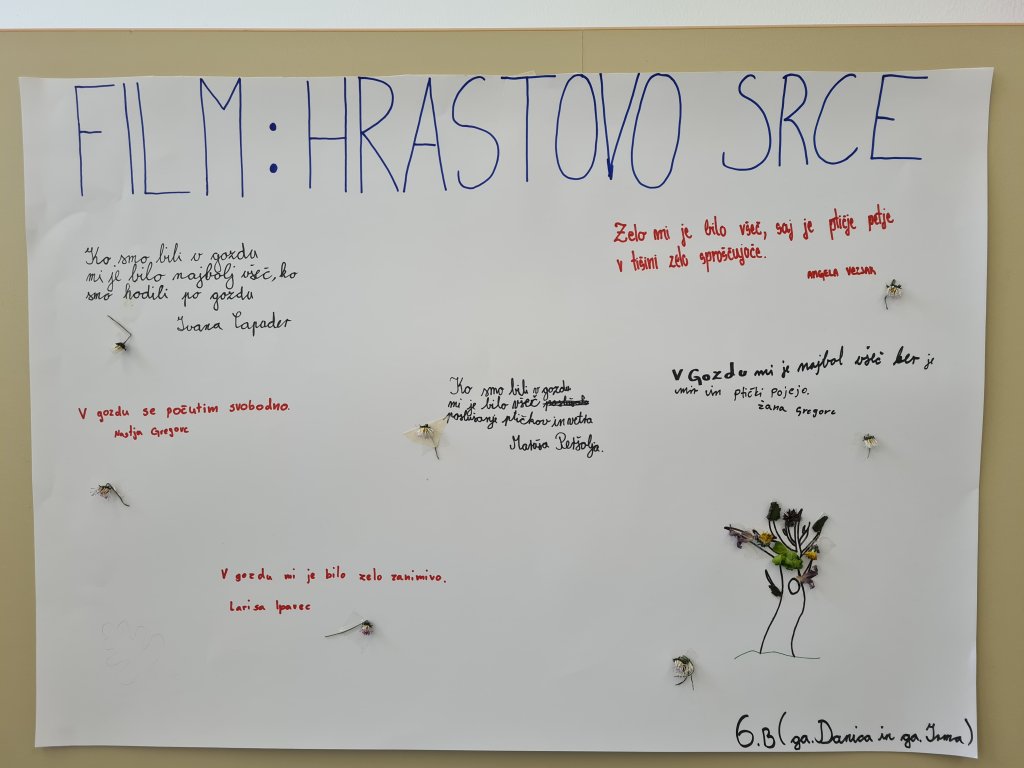 FILM: HRASTOVO SRCE
Zelo mi je bilo všeč, saj je ptičje petje
v tišini zelo sproščujoče.
ANGELA VEZJAK
Ko smo bili v gozdu
mi je bilo najbolj všeč, ko
smo hodili po gozdu
Ivana Capader
V Gozdu mi je najbol všeč ker je
mir in ptički pojejo.
žana Gregorc
Ko smo bili v gozdu
mi je bilo všeč
poslušanje ptičkov in vetra
Matāša Petšolja.
V gozdu se počutim svobodno.
Nastja Gregorc
V gozdu mi je bilo zelo zanimivo.
Larisa Ipavec
6.B (ga. Danica in ga. Irma)